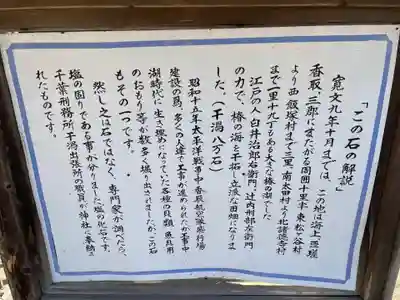 「この石の解説」
寛文九年十月までは、この地は海上、匝瑳
香取、三郎にまたがる周囲十里半 東松ヶ谷村
より西飯塚村まで三里、南太田村より北諸徳寺村
まで一里十九丁もある大きな椿湖でした
江戸の人、白井治郎右衛門、辻内刑部左衛門
の力で、椿の海を干拓し立派な田畑になりま
した、(干潟八万石)
昭和十五年太平洋戦争中香取航空隊飛行場
建設の為、多くの人達で工事が進められたが工事中
湖時代に生き埋めになっていた各種の貝類 魚具用
のおもり等が数多く堀り出されましたが、この石
も その一つです。
然し之は石ではなく、専門家が調べたら、
塩の固りである事が分りました塩の化石です。
千葉刑務所干潟出張所の職員が神社に奉納さ
れたものです。